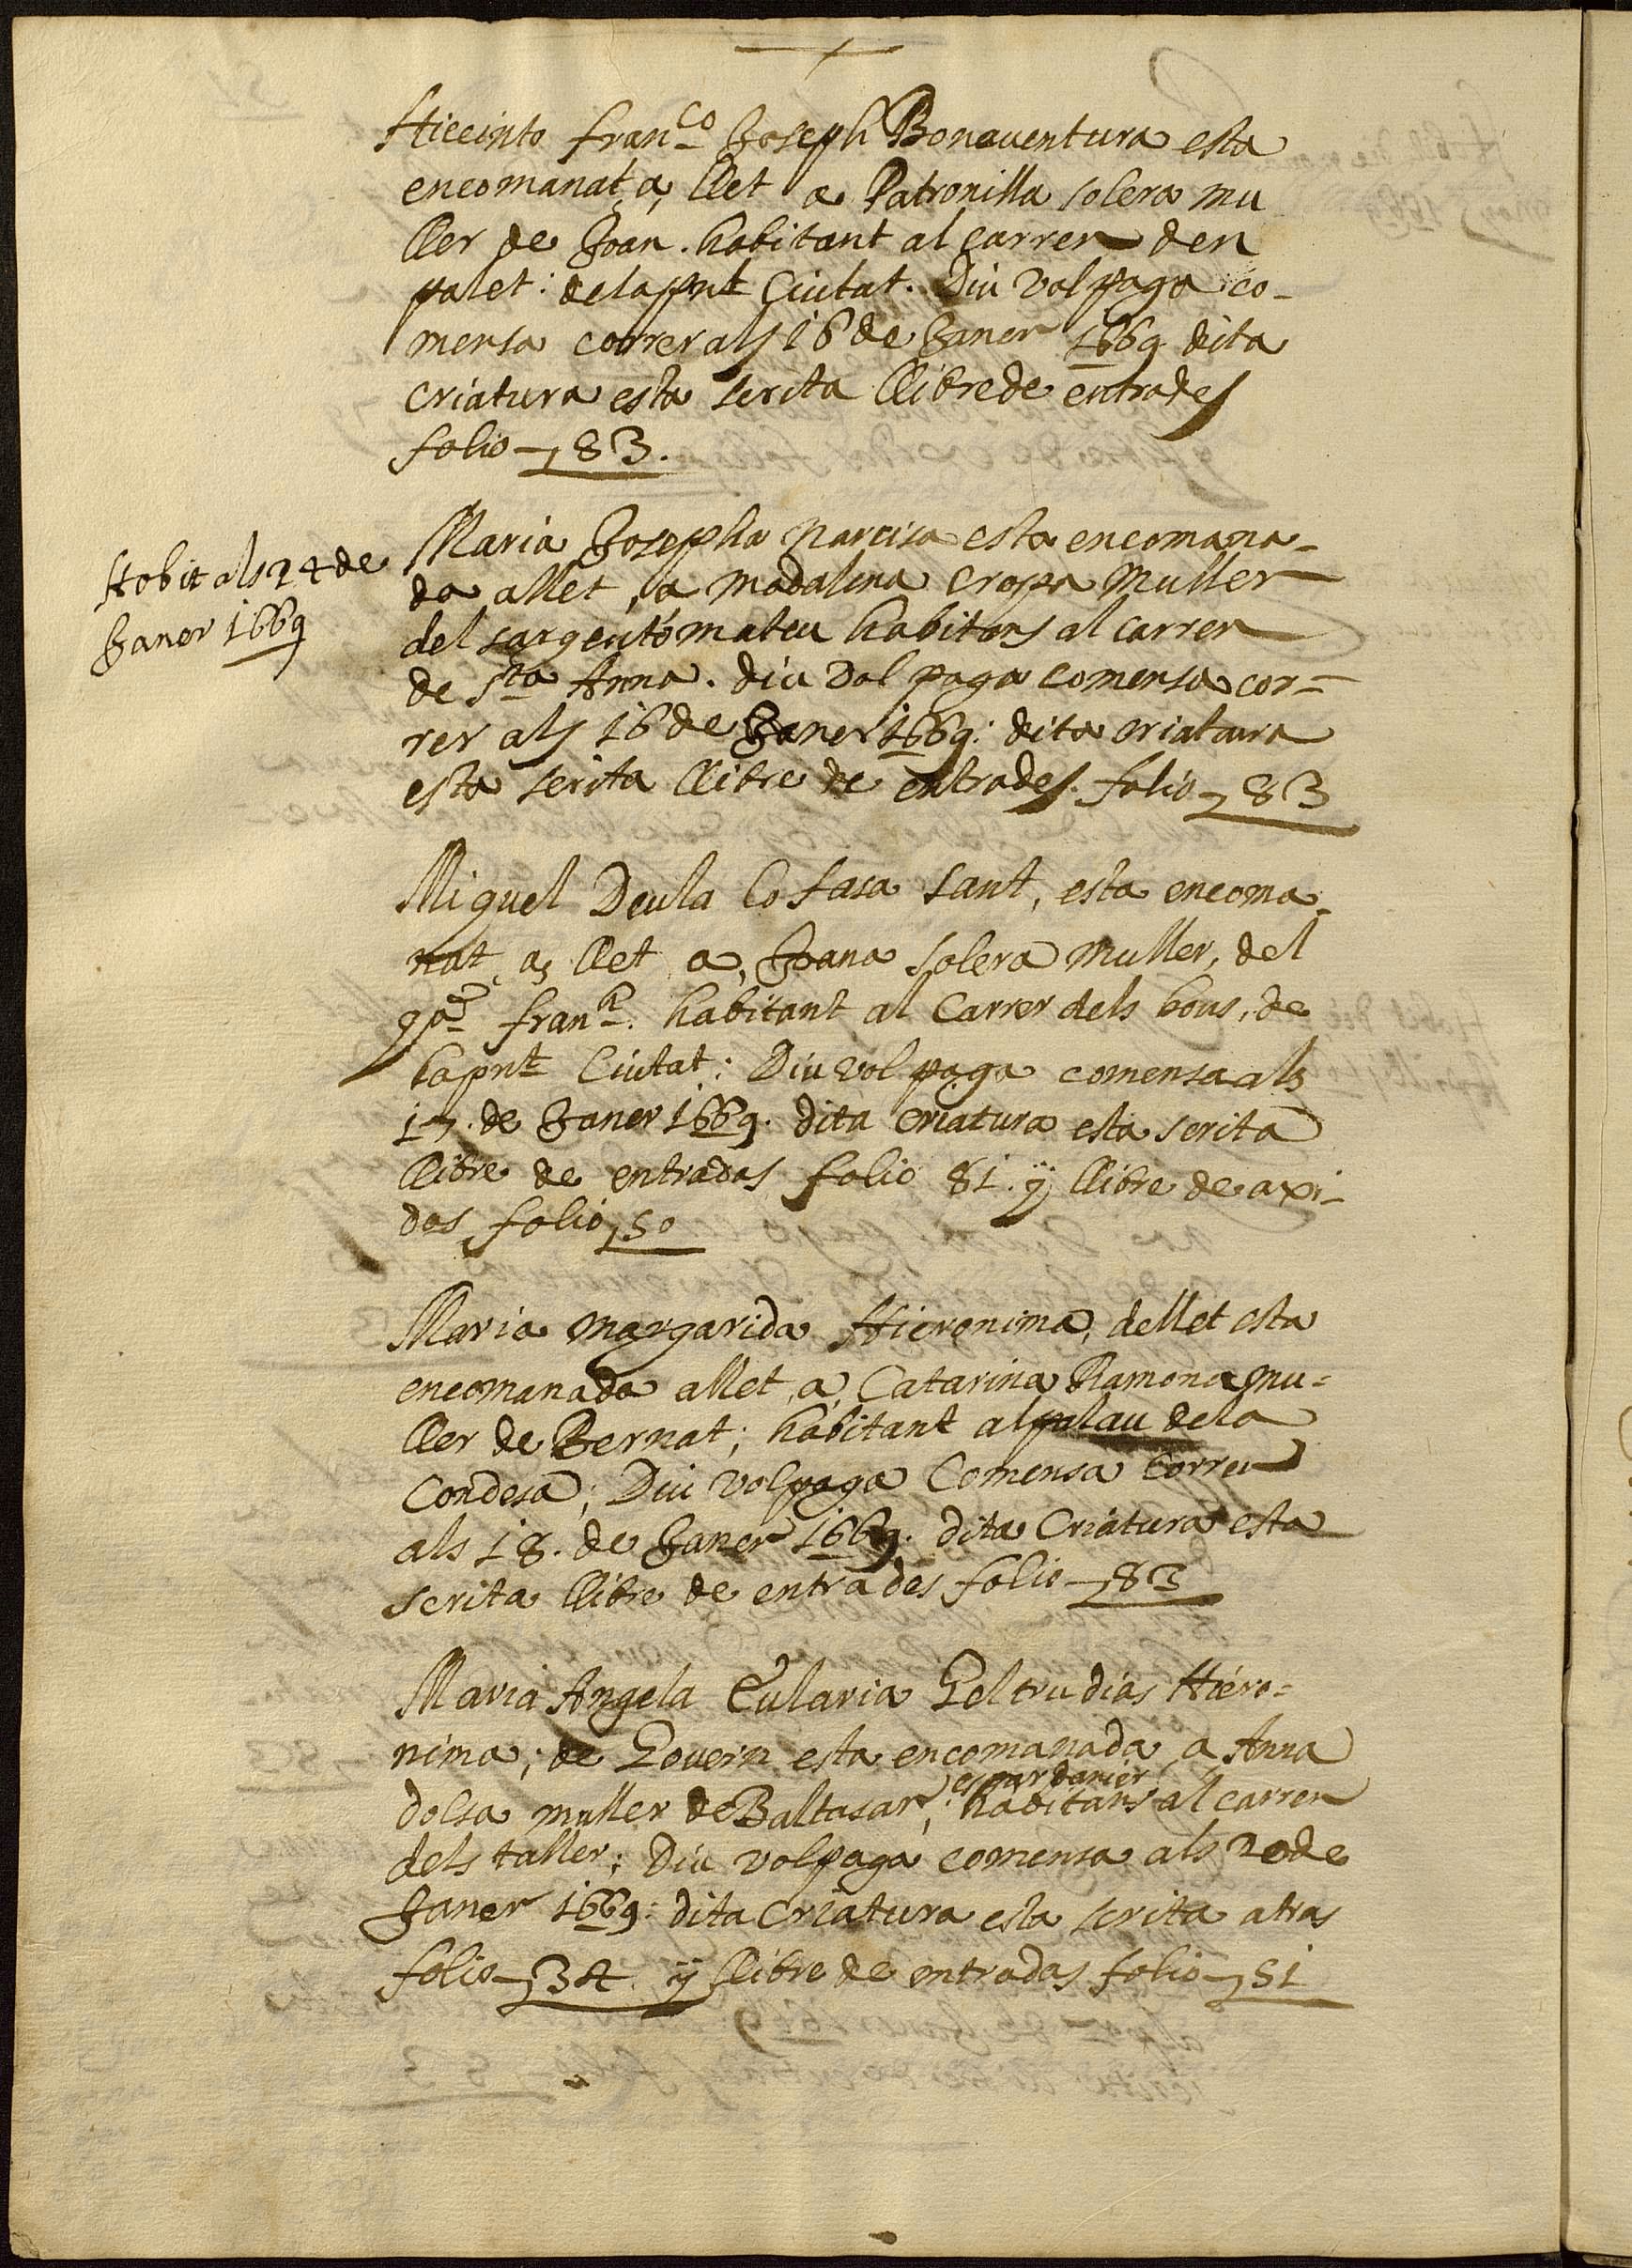 Hiecinto fran.co Joseph Bonaventura esta
encomanat a llet a Patronilla solera mu
ller de Joan. habitant al carrer den
palet: de la pnt Ciutat. Diu vol paga co-
mensa correr als 16 de Janer 1669 dita
criatura esta scrita llibre de entrades
folio 83.
Hobit als 24 de
Janer 1669
Maria Josepha narcisa esta encomana-
da allet, a madalena cropa Muller
del sargento mateu habitans al carrer
de Sta Anna. diu vol paga comensa cor=
rer als 16 de Janer 1669: dita criatura
esta scrita llibre de entrades. folio 83
Miquel Deula Cosfasa sant, esta encoma-
nat, a llet a, Joana solera muller, del
qo fran.ch habitant al Carrer dels bous, de
la pnt Ciutat: Diu vol paga comensa als
17. de Janer 1669. dita criatura esta scrita
llibre de entradas folio 81. ÿ llibre de axi-
das folio 50
Maria margarida Hieronima, dellet esta
encomanada allet, a, Catarina Ramona mu=
ller de Bernat; habitant al palau de la
Condesa; Diu vol paga Comensa Correr
als 18. de Janer 1669. dita Criatura esta
scrita llibre de entrades folio 83
Maria Angela Eularia Geltrudias Hiero=
nima; de Govern esta encomanada a Anna
dolsa muller de Baltasar, espardaner; habitans al carrer
dels taller; Diu vol paga comensa als 20 de
Janer 1669: dita Criatura esta scrita atras
folio 34 ÿ llibre de entradas folio 51